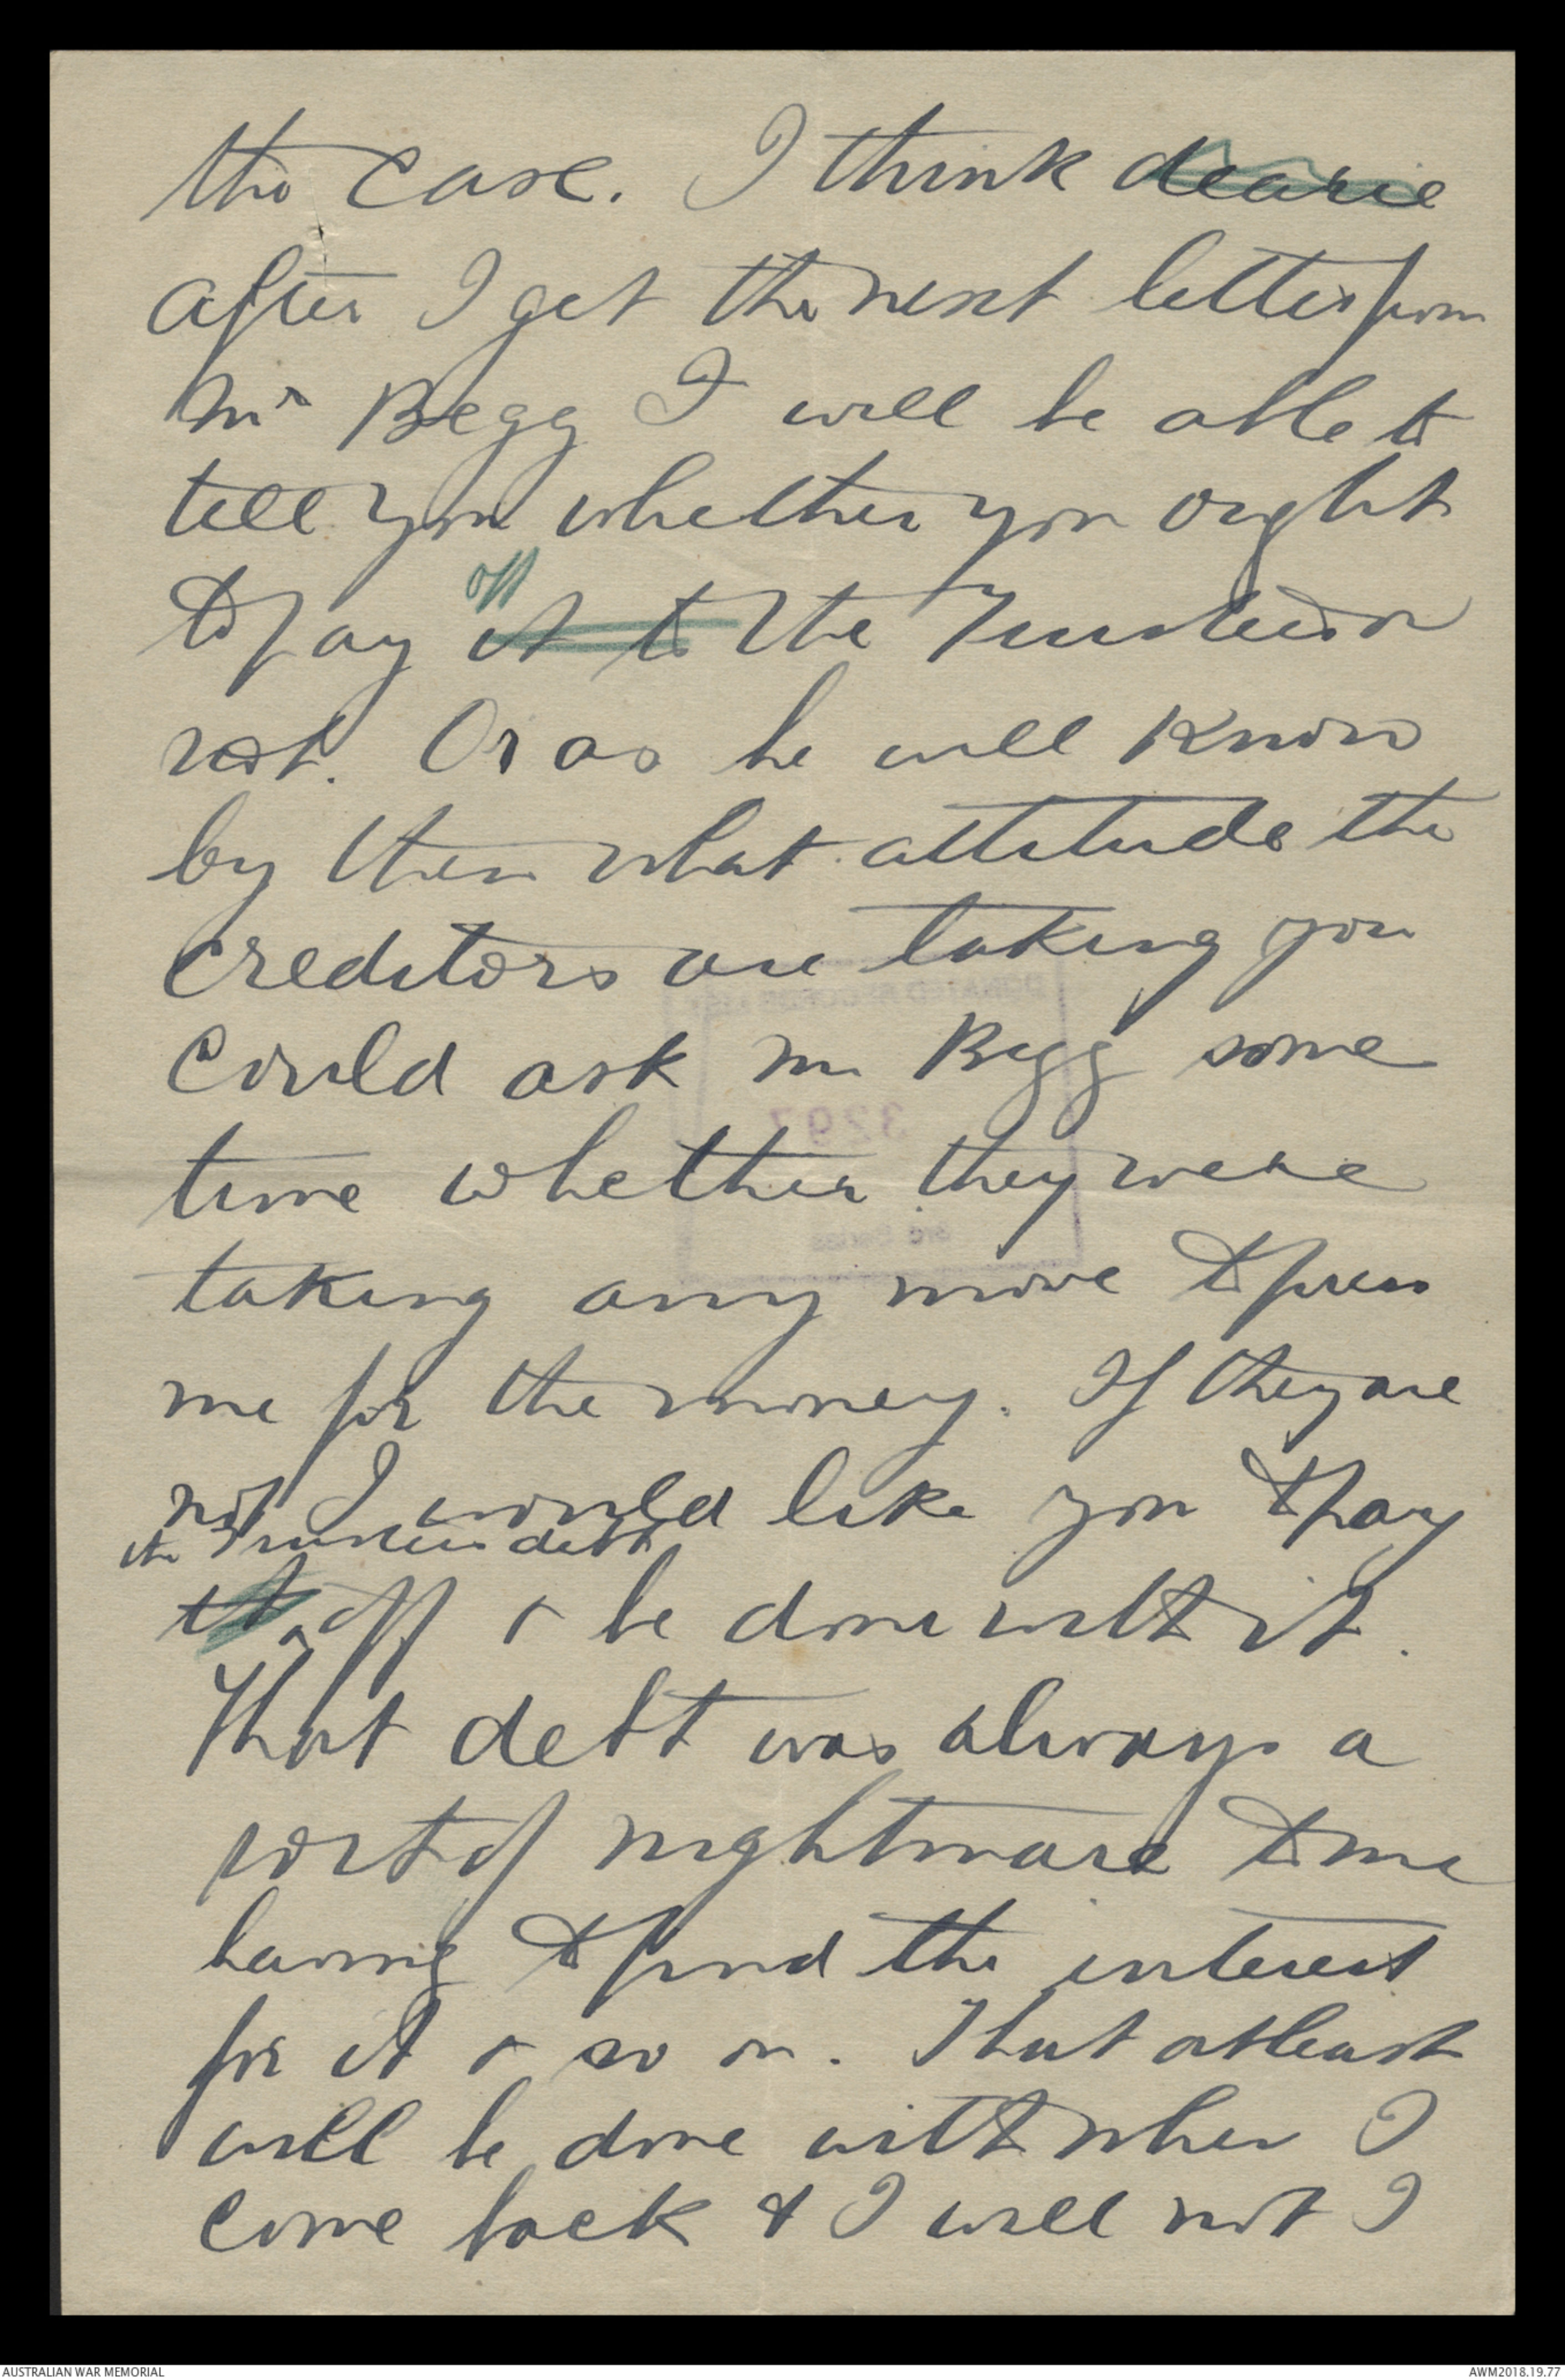 the case. I think dearie
after I get the next letter from
Mr Begg I will be able to
tell you whether you ought
off
to pay it to the Trustees or
not. Or as he will know
by then what attitude the
creditors are taking you
could ask Mr Begg some
time whether they were
taking any move to press
me for the money. If they are
not I would like you to pay
the Trustees debt
it off & be done with it.
That debt was always a
sort of nightmare to me
having to find the interest
for it & so on. That at least
will be done with when I
come back & I will not I
3297
AUSTRALIAN WAR MEMORIAL
AWM2018.19.77